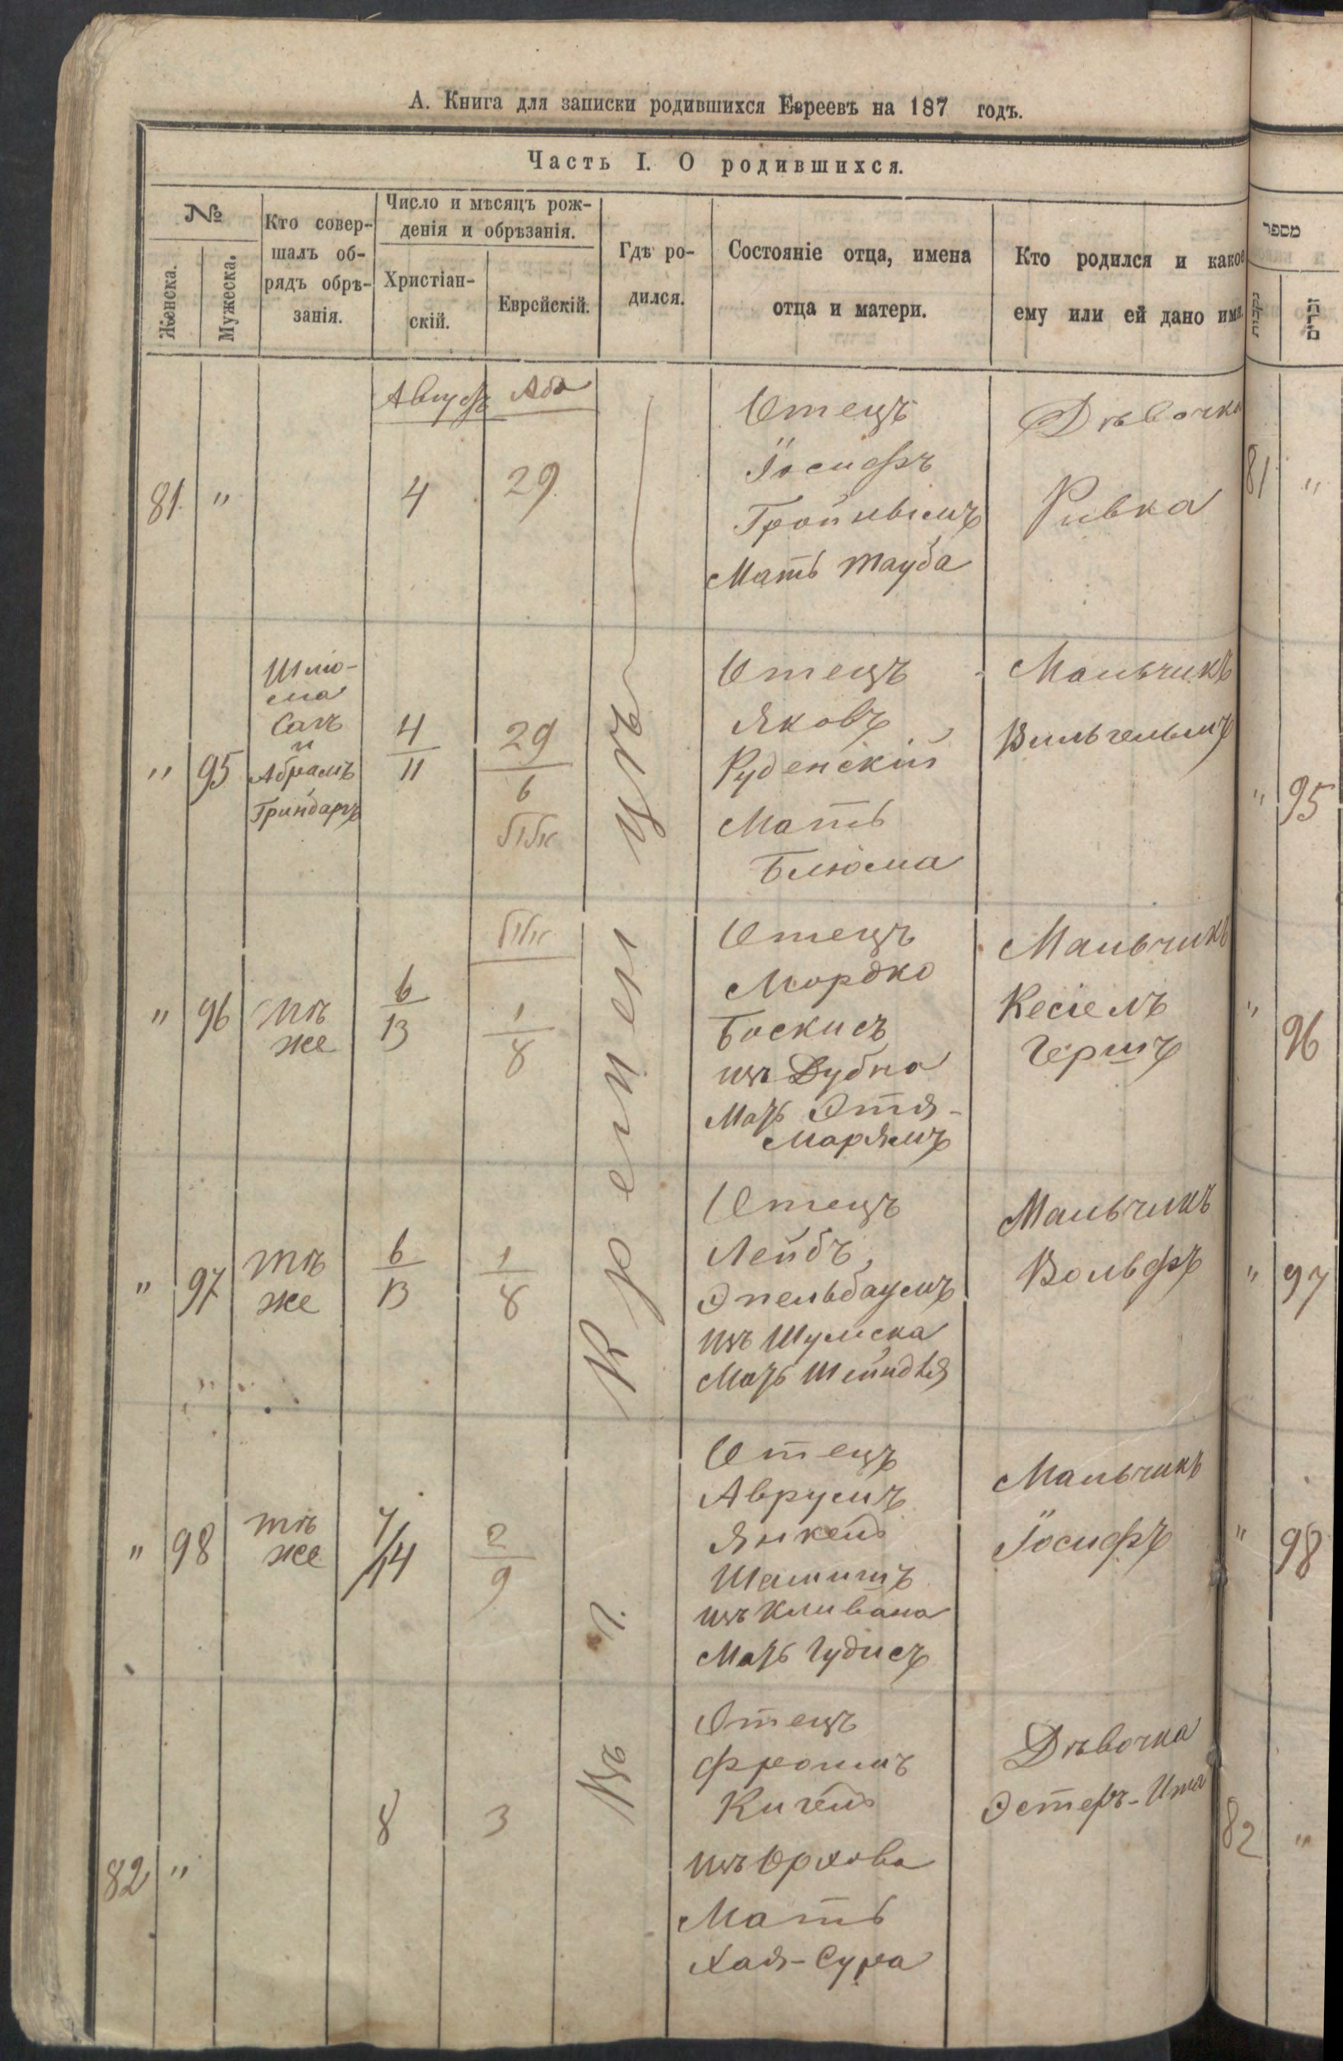 А. Книга для записки родившихся Евреевъ на 187 годъ.
Часть I. О родившихся.
№
Женска.
Мужеска.
Кто совер-
шалъ об-
рядъ обрѣ-
занія.
Число и мѣсяцъ рож-
денія и обрѣзанія.
Христіан-
скій.
Еврейскій.
Гдѣ ро-
дился.
Состояніе отца, имена
отца и матери.
Кто родился и какое
ему или ей дано имя.
מספר
נקבות
זכרים
Августъ
Аба
81 "
4
29
Отецъ
Іосифъ
Тройнымъ
Мать Тауба
Дѣвочка
Ривка
81 "
" 95
Шліо-
ма
Сапъ
и
Абрамъ
Гриндаръ
4
11
29
6
Отецъ
Яковъ
Руденскій
Мать
Блюма
Мальчикъ
Вильгельмъ
" 95
" 96
тѣ
же
6
13
1
8
Отецъ
Мордко
Боскисъ
изъ Дубна
Мать Этя-
Марямъ
Мальчикъ
Кесіелъ
Гершъ
" 96
" 97
тѣ
же
6
13
1
8
Отецъ
Лейбъ
Эпельбаумъ
изъ Шумска
Мать Шейндля
Мальчикъ
Вольфъ
" 97
" 98
тѣ
же
7/14
2
9
Отецъ
Аврумъ
Янкель
изъ Кливана
Мать Гудисъ
Мальчикъ
Іосифъ
" 98
82 "
8
3
Отецъ
Фроимъ
Кигель
изъ Орхова
Мать
Хая-Сура
Дѣвочка
Эстеръ-Ита
82 "
Въ г. Кременцѣ